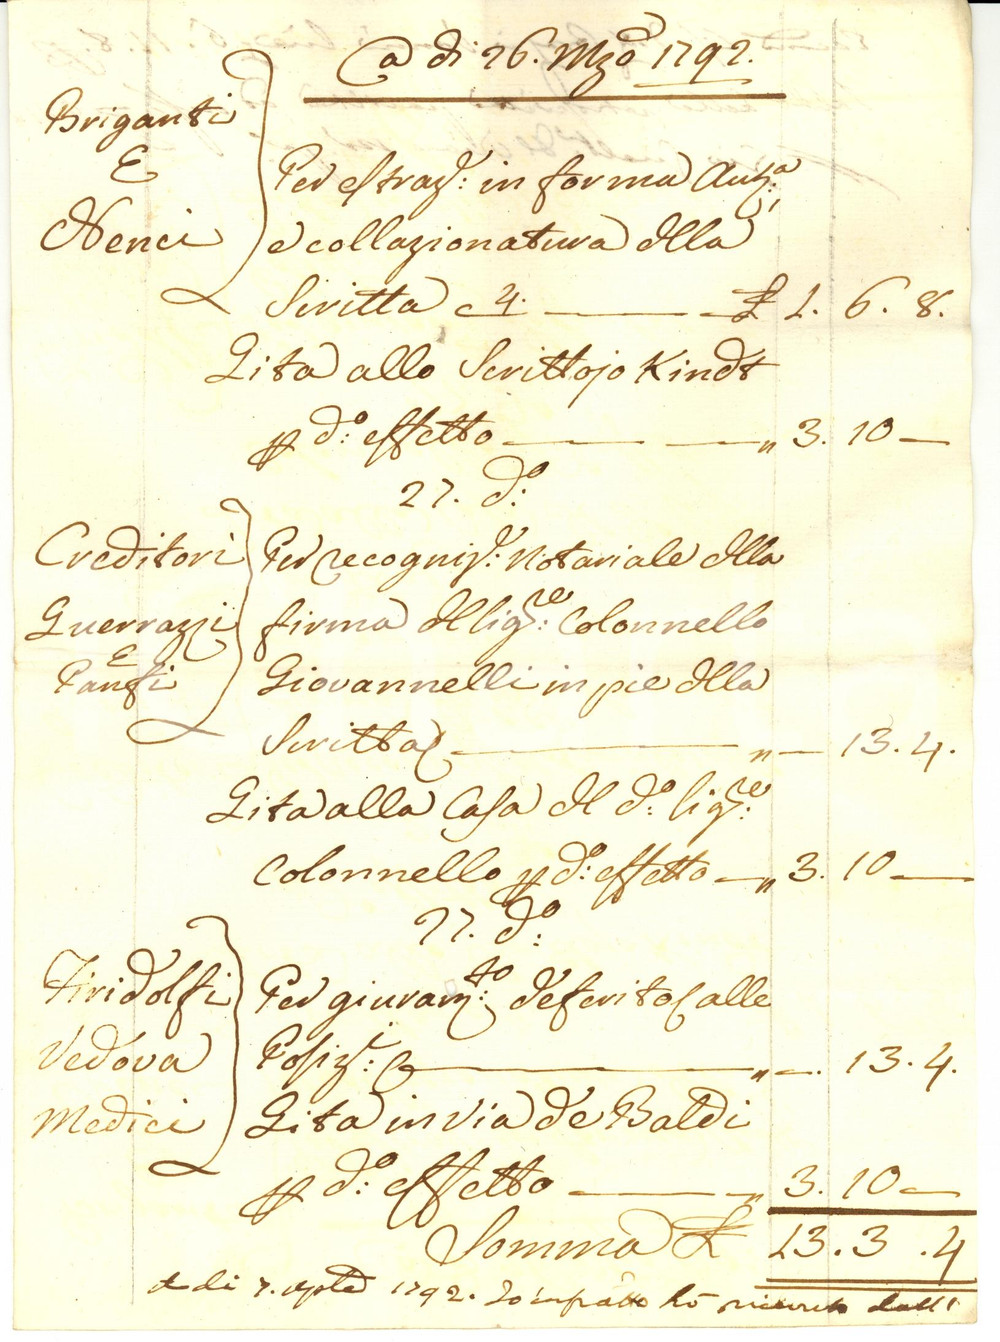 A dì 26. Mzo 1792.
Briganti
E
Nenci
Per estraz.: in forma Autca:
e collazionatura della
Scritta c 4. — £ 1. 6. 8.
Gita allo Scrittojo Kindt
p d:o effetto — " 3. 10 —
27. d:o
Creditori
Guerrazzi
E
Panfi
Per recogniz.: Notariale della
firma del Sig:re Colonnello
Giovannelli in pie della
Scritta — " — 13. 4.
Gita alla Casa del d:o Sig:re
Colonnello p d:o effetto — " 3. 10 —
27. d:o
Tiridolfi
Vedova
Medici
Per giuram:to deferito alle
Posiz:i — " — 13. 4.
Gita in Via de Baldi
p d:o effetto — " 3. 10 —
Somma £ 13. 3. 4
A di 7. 1792. Io infratto ho ricevuto dalli